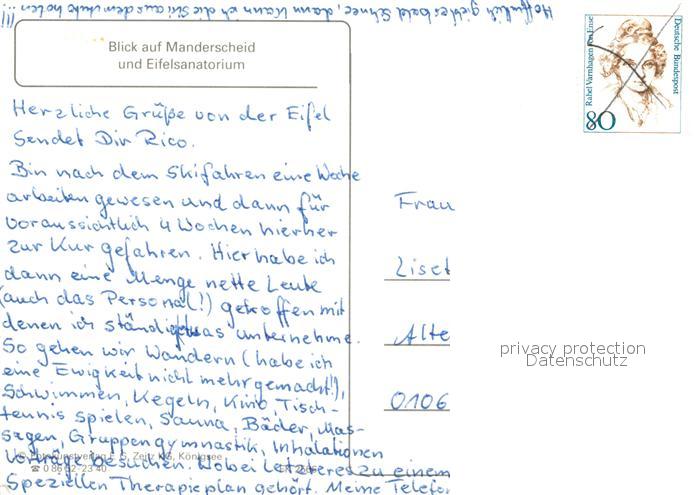 Hoffentlich gibt es bald Schnee, dann kann ich die Ski aus dem holen !!!
Blick auf Manderscheid
und Eifelsanatorium
Rahel Varnhagen von Ense
Deutsche Bundespost
80
Herzliche Grüße von der Eifel
sendet Dir Rico.
Bin nach dem Skifahren eine Woche
arbeiten gewesen und dann für
voraussichtlich 4 Wochen hierher
zur Kur gefahren. Hier habe ich
dann eine Menge nette Leute
(auch das Personal!) getroffen mit
denen ich ständig etwas unternehme.
So gehen wir Wandern (habe ich
eine Ewigkeit nicht mehr gemacht!),
Schwimmen, Kegeln, Kino, Tisch-
tennis spielen, Sauna, Bäder, Mas-
sagen, Gruppengymnastik, Inhalationen
Vorträge besuchen. Wobei Letzteres zu einem
Speziellen Therapieplan gehört. Meine Telefo
Frau
Liset
Alte
0106
privacy protection
Datenschutz
Zeitz KG, Königsee
☎ 0 86 62-23 40